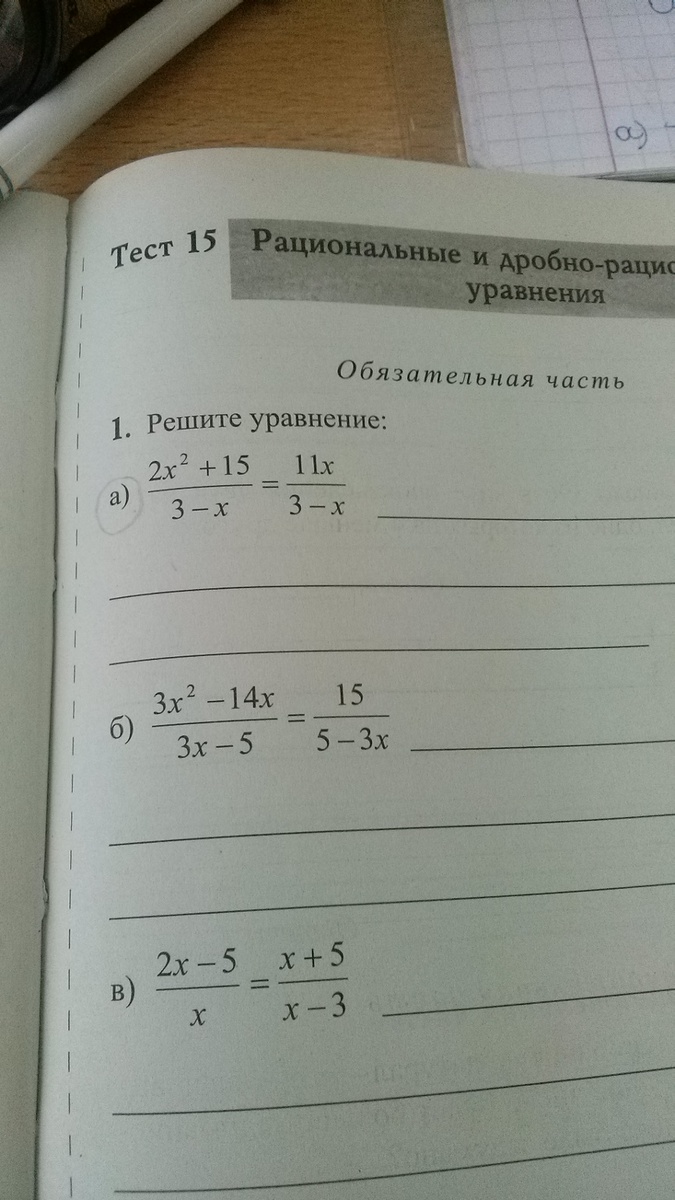 а)
Тест 15 Рациональные и дробно-рацио
уравнения
Обязательная часть
1. Решите уравнение:
а) (2x² + 15)/(3 – x) = 11x/(3 – x)
б) (3x² – 14x)/(3x – 5) = 15/(5 – 3x)
в) (2x – 5)/x = (x + 5)/(x – 3)